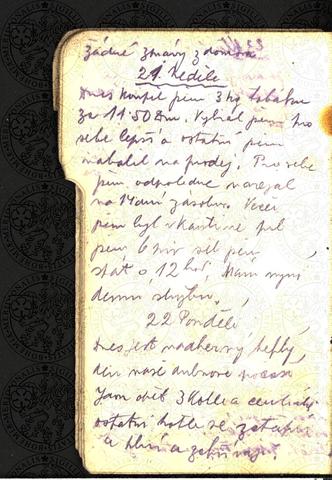 žádné zprávy z domova
21 Neděle
Dnes koupil jsem 3 kg tabáku
za 11.50 Zm. Vybral jsem pro
sebe lepší a ostatní jsem
nabalil na prodej. Pro sebe
jsem odpoledne nařezal
na 14 dní zásobu. Večer
jsem byl v kantině pil
jsem 6 piv šel jsem
spát o 12 hod. Mám nyní
denní službu.
22 Pondělí
Dnes jest nádherný teplý
den naše dubnové počasí
Jsem opět 3 kotle a centrály
ostatní kotle se zatápí
a hlína